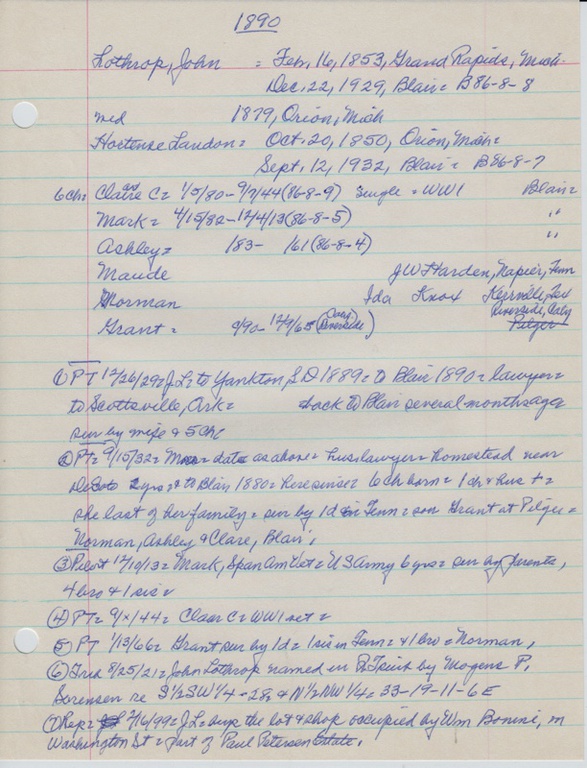 1890
Lothrop, John = Feb. 16, 1853, Grand Rapids, Mich.
Dec. 22, 1929, Blair = B86-8-8
md 1879, Orion, Mich
Hortense Landon = Oct. 20, 1850, Orion, Mich =
Sept. 12, 1932, Blair = B86-8-7
6ch = Claire C = 1/5/80 - 9/9/44 (86-8-9) single = WW1 Blair =
Mark = 4/15/82 - 12/4/13 (86-8-5) "
Ashley = 183- 161 (86-8-4) "
Maude J W Harden, Napier, Tenn
Norman Ida Knox Kerrville, Tex
Grant = 9/90 - 12/9/65 ( Riverside) Riverside, Calif Pilger
① PT 12/26/29 = J L = to Yankton S.D 1889 = to Blair 1890 = lawyer =
to Scottsville, Ark = back to Blair several months ago
sur by wife & 5 ch
② PT = 9/15/32 = data as above = hus lawyer = homestead near
DeSoto 2 yrs = & to Blair 1880 = here since = 6 ch born = 1 ch & hus + =
she last of her family = sur by 1 d in Tenn = son Grant at Pilger =
Norman, Ashley & Clare, Blair,
③ Pilot 12/10/13 = Mark, Span Am Vet = US Army 6 yrs = sur by parents,
4 bro & 1 sis =
④ PT = 9/x/44 = Clair C = WW1 vet =
⑤ PT 1/13/66 = Grant sur by 1 d = 1 sis in Tenn = & 1 bro = Norman,
⑥ 8/25/21 = John Lothrop named in by Mogens P.
Sorensen re S½ SW ¼ - 28 & N½ NW ¼ = 33-19-11-6 E
⑦ Rep = 2/16/99 = J L = buys the lot & shop occupied by Wm Bonine, on
Washington St = part of Paul Petersen Estate,